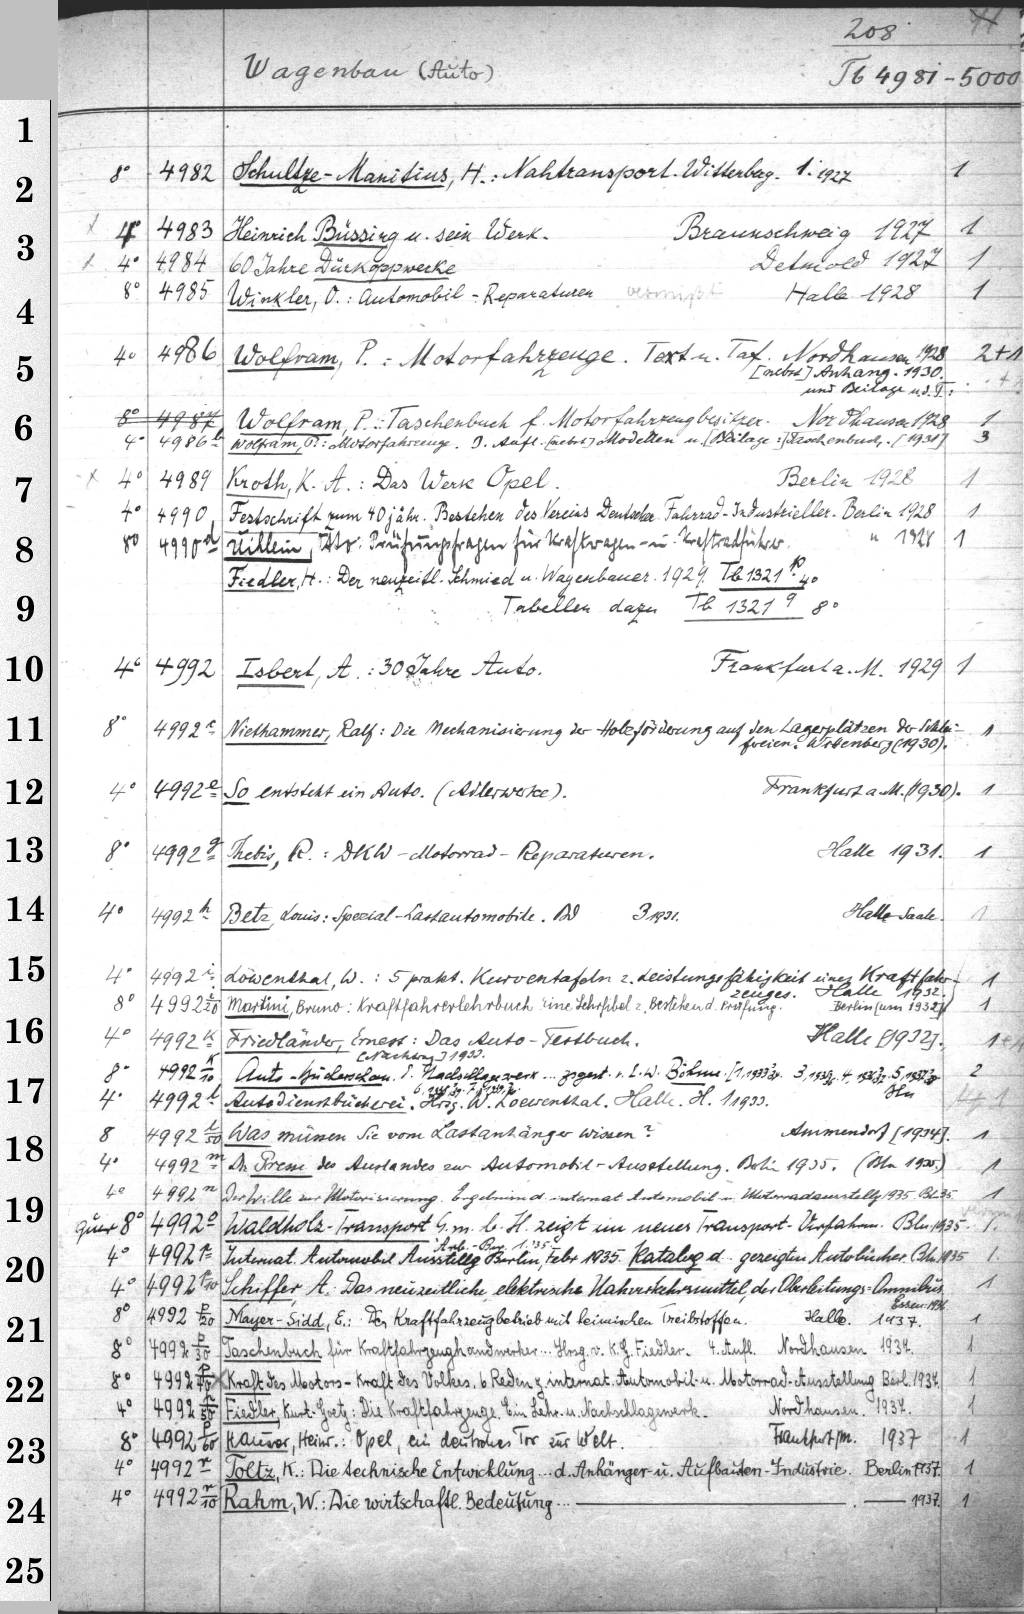 208
Wagenbau (Auto) Tb 4981-5000
1
2 8° 4982 Schultze-Manitius, H.: Nahtransport. Wittenberg. 1. 1927 1
3 4° 4983 Heinrich Büssing u. sein Werk. Braunschweig 1927 1
4° 4984 60 Jahre Dürkoppwerke Detmold 1927 1
4 8° 4985 Winkler, O.: Automobil-Reparaturen vermißt Halle 1928 1
5 4° 4986 Wolfram, P.: Motorfahrzeuge. Text u. Taf. Nordhausen 1928 2+1
[nebst] Anhang. 1930.
und Beilage u. d. T.:
6 8° 4987 Wolfram, P.: Taschenbuch f. Motorfahrzeugbesitzer. Nordhausen 1928 1
4° 4986b Wolfram, P.: Motorfahrzeuge. 9. Aufl. [nebst] Modellen u. [Beilage:] Taschenbuch. [1931] 3
7 4° 4989 Kroth, K. A.: Das Werk Opel. Berlin 1928 1
4° 4990 Festschrift zum 40 jähr. Bestehen des Vereins Deutscher Fahrrad-Industrieller. Berlin 1928 1
8 8° 4990d Uihlein, Otto: Prüfungsfragen für Kraftwagen- u. Kraftradführer. " 1928 1
Fiedler, H.: Der neuzeitl. Schmied u. Wagenbauer. 1929. Tb 1321 p 4°
9 Tabellen dazu Tb 1321 q 8°
10 4° 4992 Isbert, A.: 30 Jahre Auto. Frankfurt a. M. 1929 1
11 8° 4992c Niethammer, Ralf: Die Mechanisierung der Holzförderung auf den Lagerplätzen der Schlei-
freien. Wittenberg (1930). 1
12 4° 4992e So entsteht ein Auto. (Adlerwerke). Frankfurt a. M. (1930). 1
13 8° 4992g Thebis, R.: DKW-Motorrad-Reparaturen. Halle 1931. 1
14 4° 4992h Betz, Louis: Spezial-Lastautomobile. Bd 3 1931. Halle Saale. 1
15 4° 4992i Löwenthal, W.: 5 prakt. Kurventafeln z. Leistungsfähigkeit eines Kraftfahr-
zeuges. Halle 1932. 1
8° 4992 i/20 Martini, Bruno: Kraftfahrerlehrbuch. Eine Lehrfibel z. Bestehen d. Prüfung. Berlin [um 1932] 1
16 4° 4992k Friedländer, Ernest: Das Auto-Testbuch. Halle [1932].
[Nachtrag] 1933.
8° 4992 k/10 Auto-Bücherschau. E. Nachschlagewerk... zsgest. v. L. W. Böhm. 2
17 4° 4992l Autodienstbücherei. Hrsg. W. Loewenthal. Halle. H. 1 1933.
18 8 4992 l/50 Was müssen Sie vom Lastanhänger wissen? Ammendorf [1934]. 1
4° 4992m Die Presse des Auslandes zur Automobil-Ausstellung. Berlin 1935. (Bln 1935.) 1
19 4° 4992n Der Wille zur Motorisierung. Ergebnis d. internat. Automobil- u. Motorradausstellg 1935. Bln 35 1
quer 8° 4992o Waldholz-Transport G. m. b. H. zeigt im neues Transport-Verfahren. Bln 1935. 1.
20 4° 4992p Internat. Automobil Ausstellg Berlin, Febr 1935. Katalog d. gezeigten Autobücher. Bln 1935 1
4° 4992 p/10 Schiffer, A.: Das neuzeitliche, elektrische Nahverkehrsmittel, der Oberleitungs-Omnibus. 1
Essen 1936
21 8° 4992 p/20 Mayer-Sidd, E.: Der Kraftfahrzeugbetrieb mit heimischen Treibstoffen. Halle. 1937. 1
8° 4992 p/30 Taschenbuch für Kraftfahrzeughandwerker... Hrsg. v. K. G. Fiedler. 4. Aufl. Nordhausen 1937. 1
22 8° 4992 p/40 Kraft des Motors - Kraft des Volkes. 6 Reden z. internat. Automobil- u. Motorrad-Ausstellung Berl. 1937. 1
4° 4992 p/50 Fiedler, Kurt-Goetz: Die Kraftfahrzeuge. Ein Lehr- u. Nachschlagewerk. Nordhausen. 1937. 1
23 8° 4992 p/60 Hauser, Heinr.: Opel, ein deutsches Tor zur Welt. Frankfurt/M. 1937 1
4° 4992r Toltz, K.: Die technische Entwicklung... d. Anhänger- u. Aufbauten-Industrie. Berlin 1937. 1
24 4° 4992 r/10 Rahm, W.: Die wirtschaftl. Bedeutung... 1937. 1
25